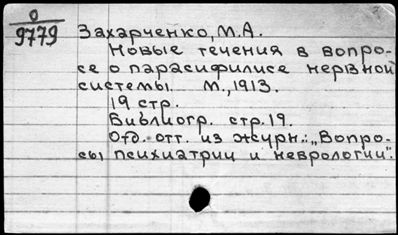 0
9779
Захарченко, М.А.
Новые течения в вопро-
се о парасифилисе нервной
системы. М., 1913.
19 стр.
Библиогр. стр. 19.
Отд. отт. из журн.: „Вопро-
сы психиатрии и неврологии".